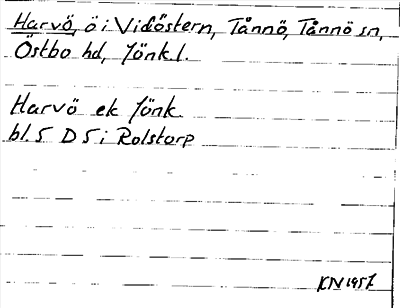 Harvö, ö i Vidöstern, Tånnö, Tånnö sn,
Östbo hd, Jönk. l.
Harvö ek Jönk.
bl. 5 D 5 i Rolstorp
KN 1957